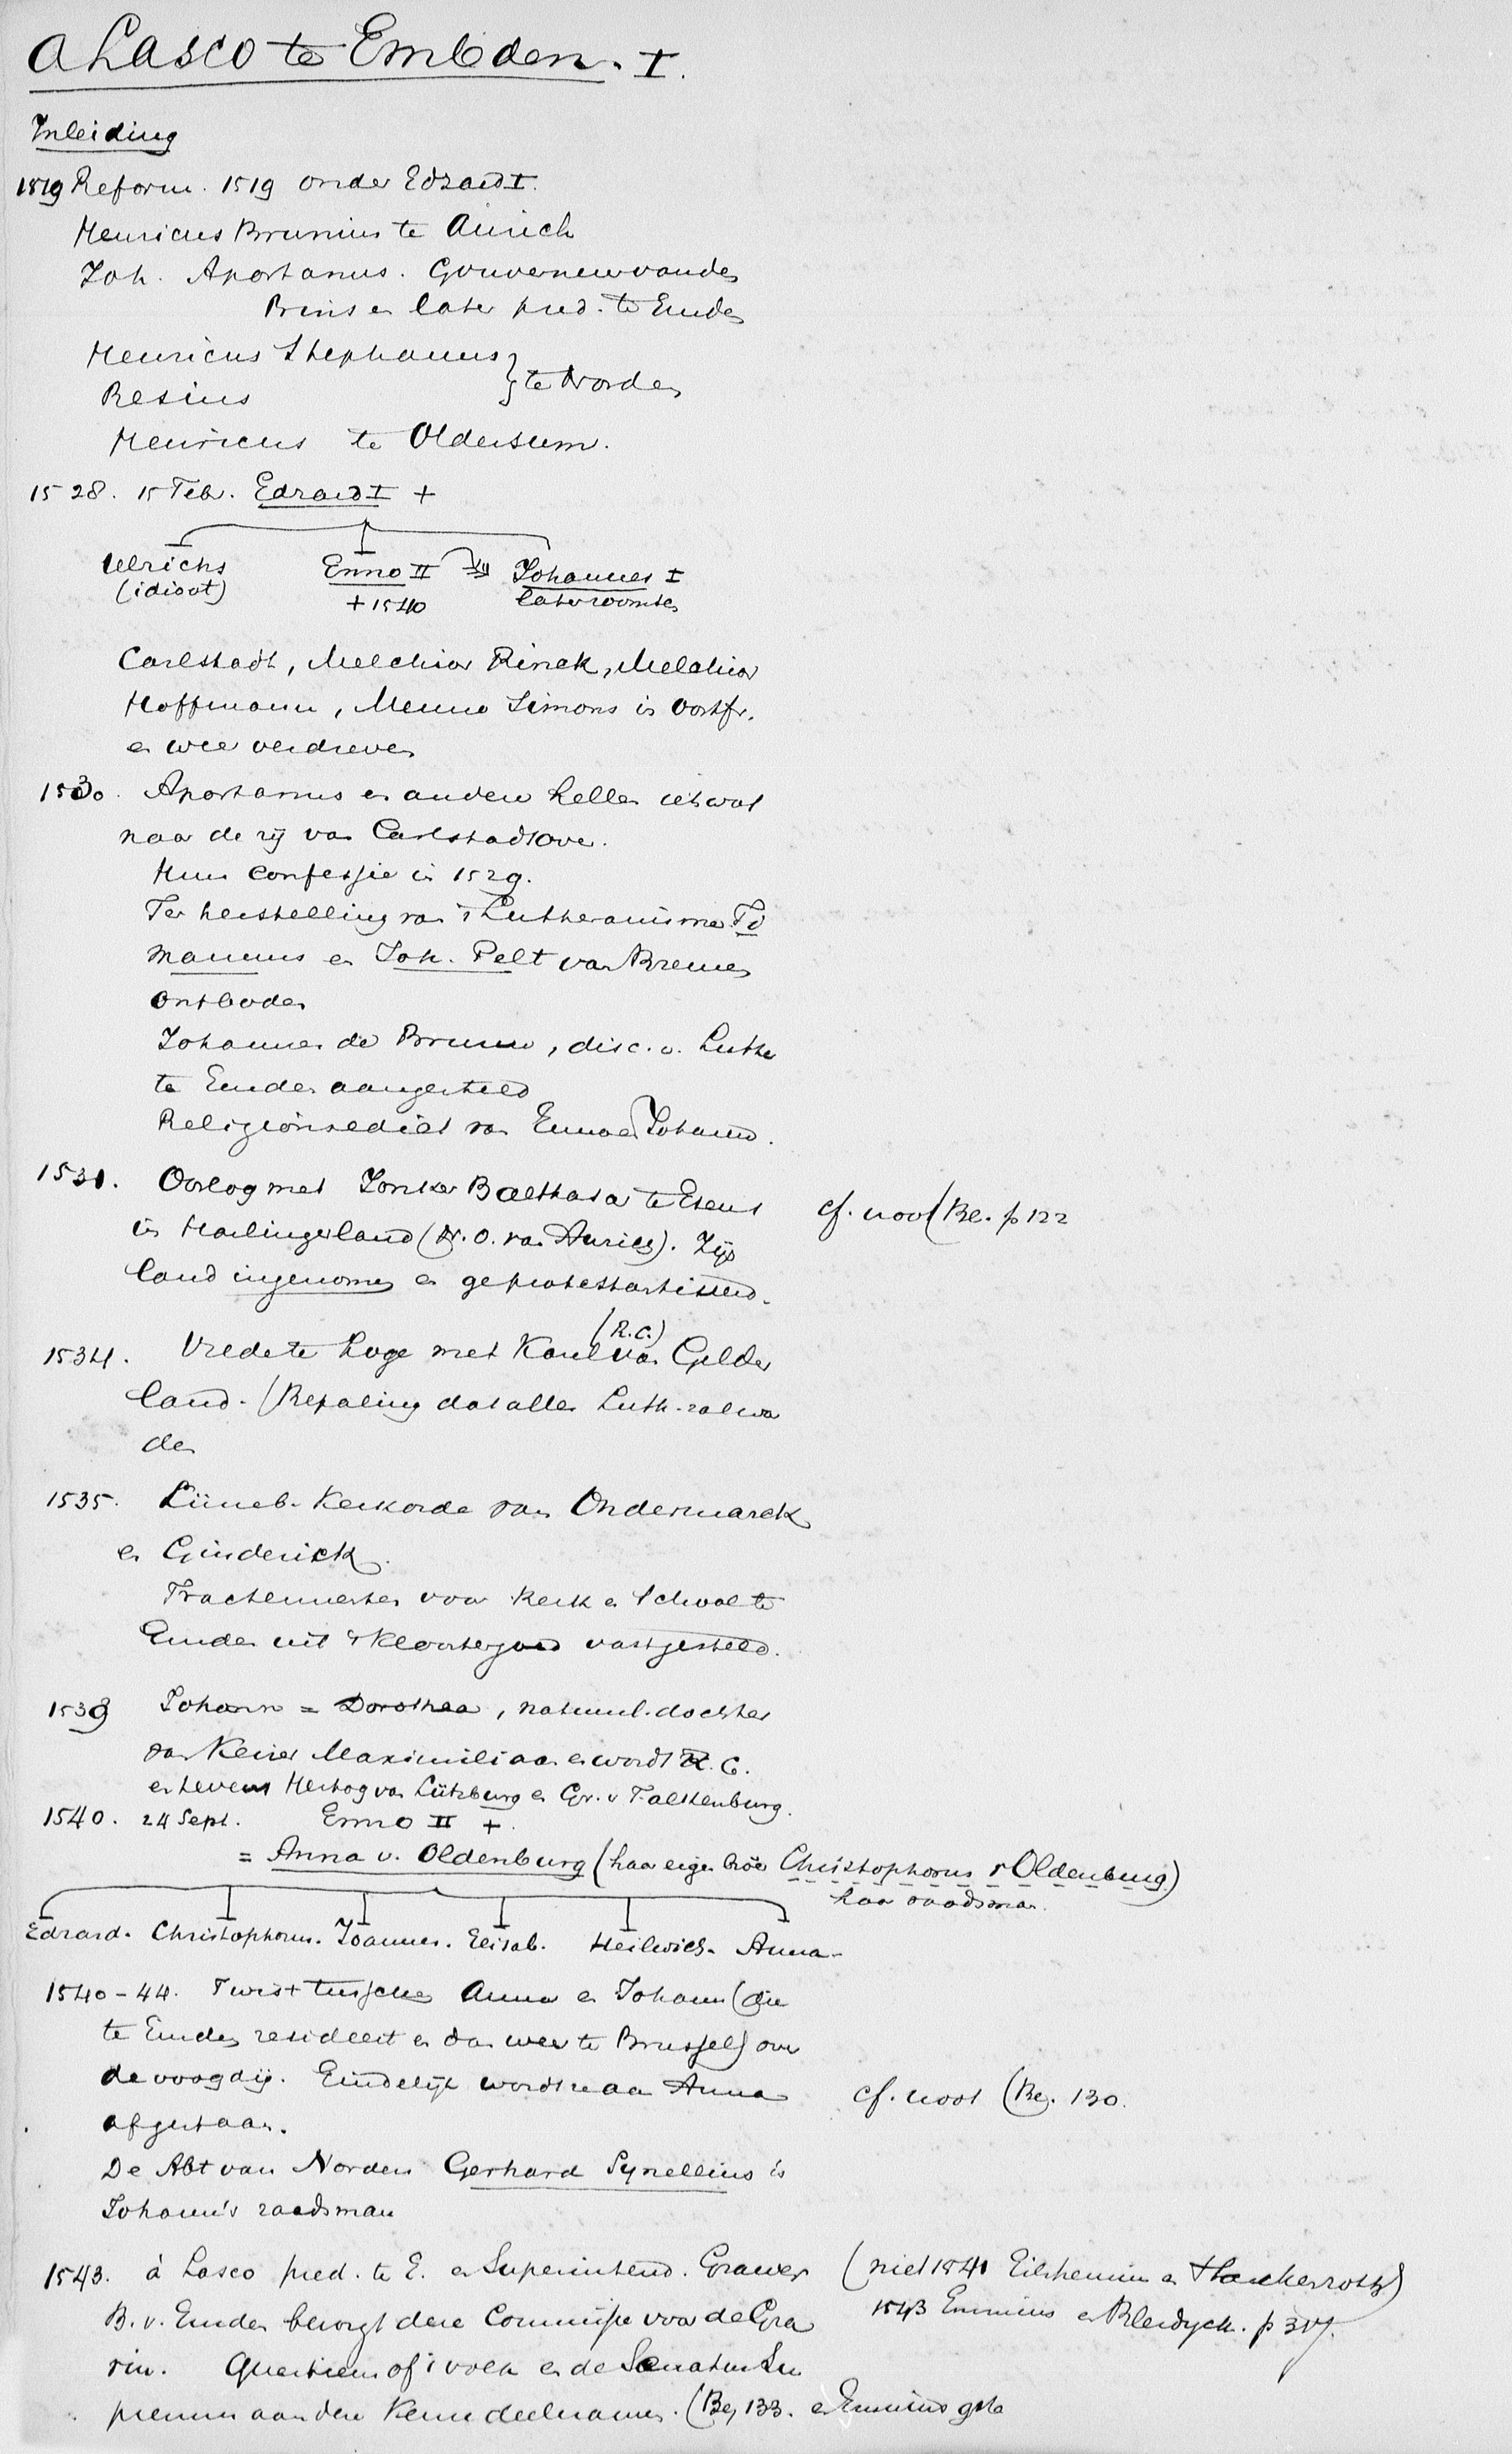 a Lasco te Embden. I.
Inleiding
1519 Reform. 1519 onder Edzard I.
Henricus Brunius te Aurich
Joh. Aportanus. Gouverneur van de
Prins en later pred. te Emden
Henricus Stephanus
Resius } te Norden
Henricus te Oldersum.
1528. 15 Feb. Edzard I +
Ulrichs Enno II Johannes I
(idioot) + 1540 later roomsch
Carlstadt, Melchior Rinck, Melchior
Hoffmann, Menno Simons in Oostfr.
en weer verdreven
1530. Aportanus en andere hellen ietwat
naar de zij van Carlstadt over.
Hun confessie in 1529.
Ter herstelling van 't Lutheranisme Ti
mannus en Joh. Pelt van Bremen
ontboden
Johannes de Brunn, disc. v. Luther
te Emden aangesteld
Religionsedict van Enno en Johann.
1531. Oorlog met Jonker Balthasar te Esens cf. noot (Be. p 122
in Harlingerland (N.O. van Aurich). Zijn
land ingenomen en geprotestantiseerd.
(R.C.)
1534. Vrede te Loge met Karel van Gelder
land. (Bepaling dat alles Luth. zal wor
den
1535. Lüneb. Kerkorde van Ondermarck
en Ginderick.
Tractementen voor Kerk en School te
Emden uit 't Kloostergoed vastgesteld.
1539 Johann = Dorothea, natuurl. dochter
van Keizer Maximiliaan en wordt R.C.
en tevens Hertog van Lützburg en Gr. v Falkenburg.
1540. 24 Sept. Enno II +.
= Anna v. Oldenburg (haar eigen broer Christophorus v Oldenburg)
haar raadsman.
Edzard. Christophorus. Joannes. Elisab. Heilwich. Anna.
1540-44. Twist tusschen Anna en Johann (die
te Emden resideert en dan weer te Brussel) over
de voogdij. Eindelijk wordt ze aan Anna cf. noot (Be. 130.
afgestaan.
De Abt van Norden Gerhard Synellius is
Johann's raadsman
1543. à Lasco pred. te E. en Superintend. Graver (niet 1541 Eilshemius en Harkenroth)
B. v. Emden bezorgt deze Commissie voor de Gra 1543 Emmius en Blesdyck. p 317.
vin. Quaestieus of 't volk en de Senatus Su
premus aan deze Keur deelnamen. (Be, 133. en Emmius